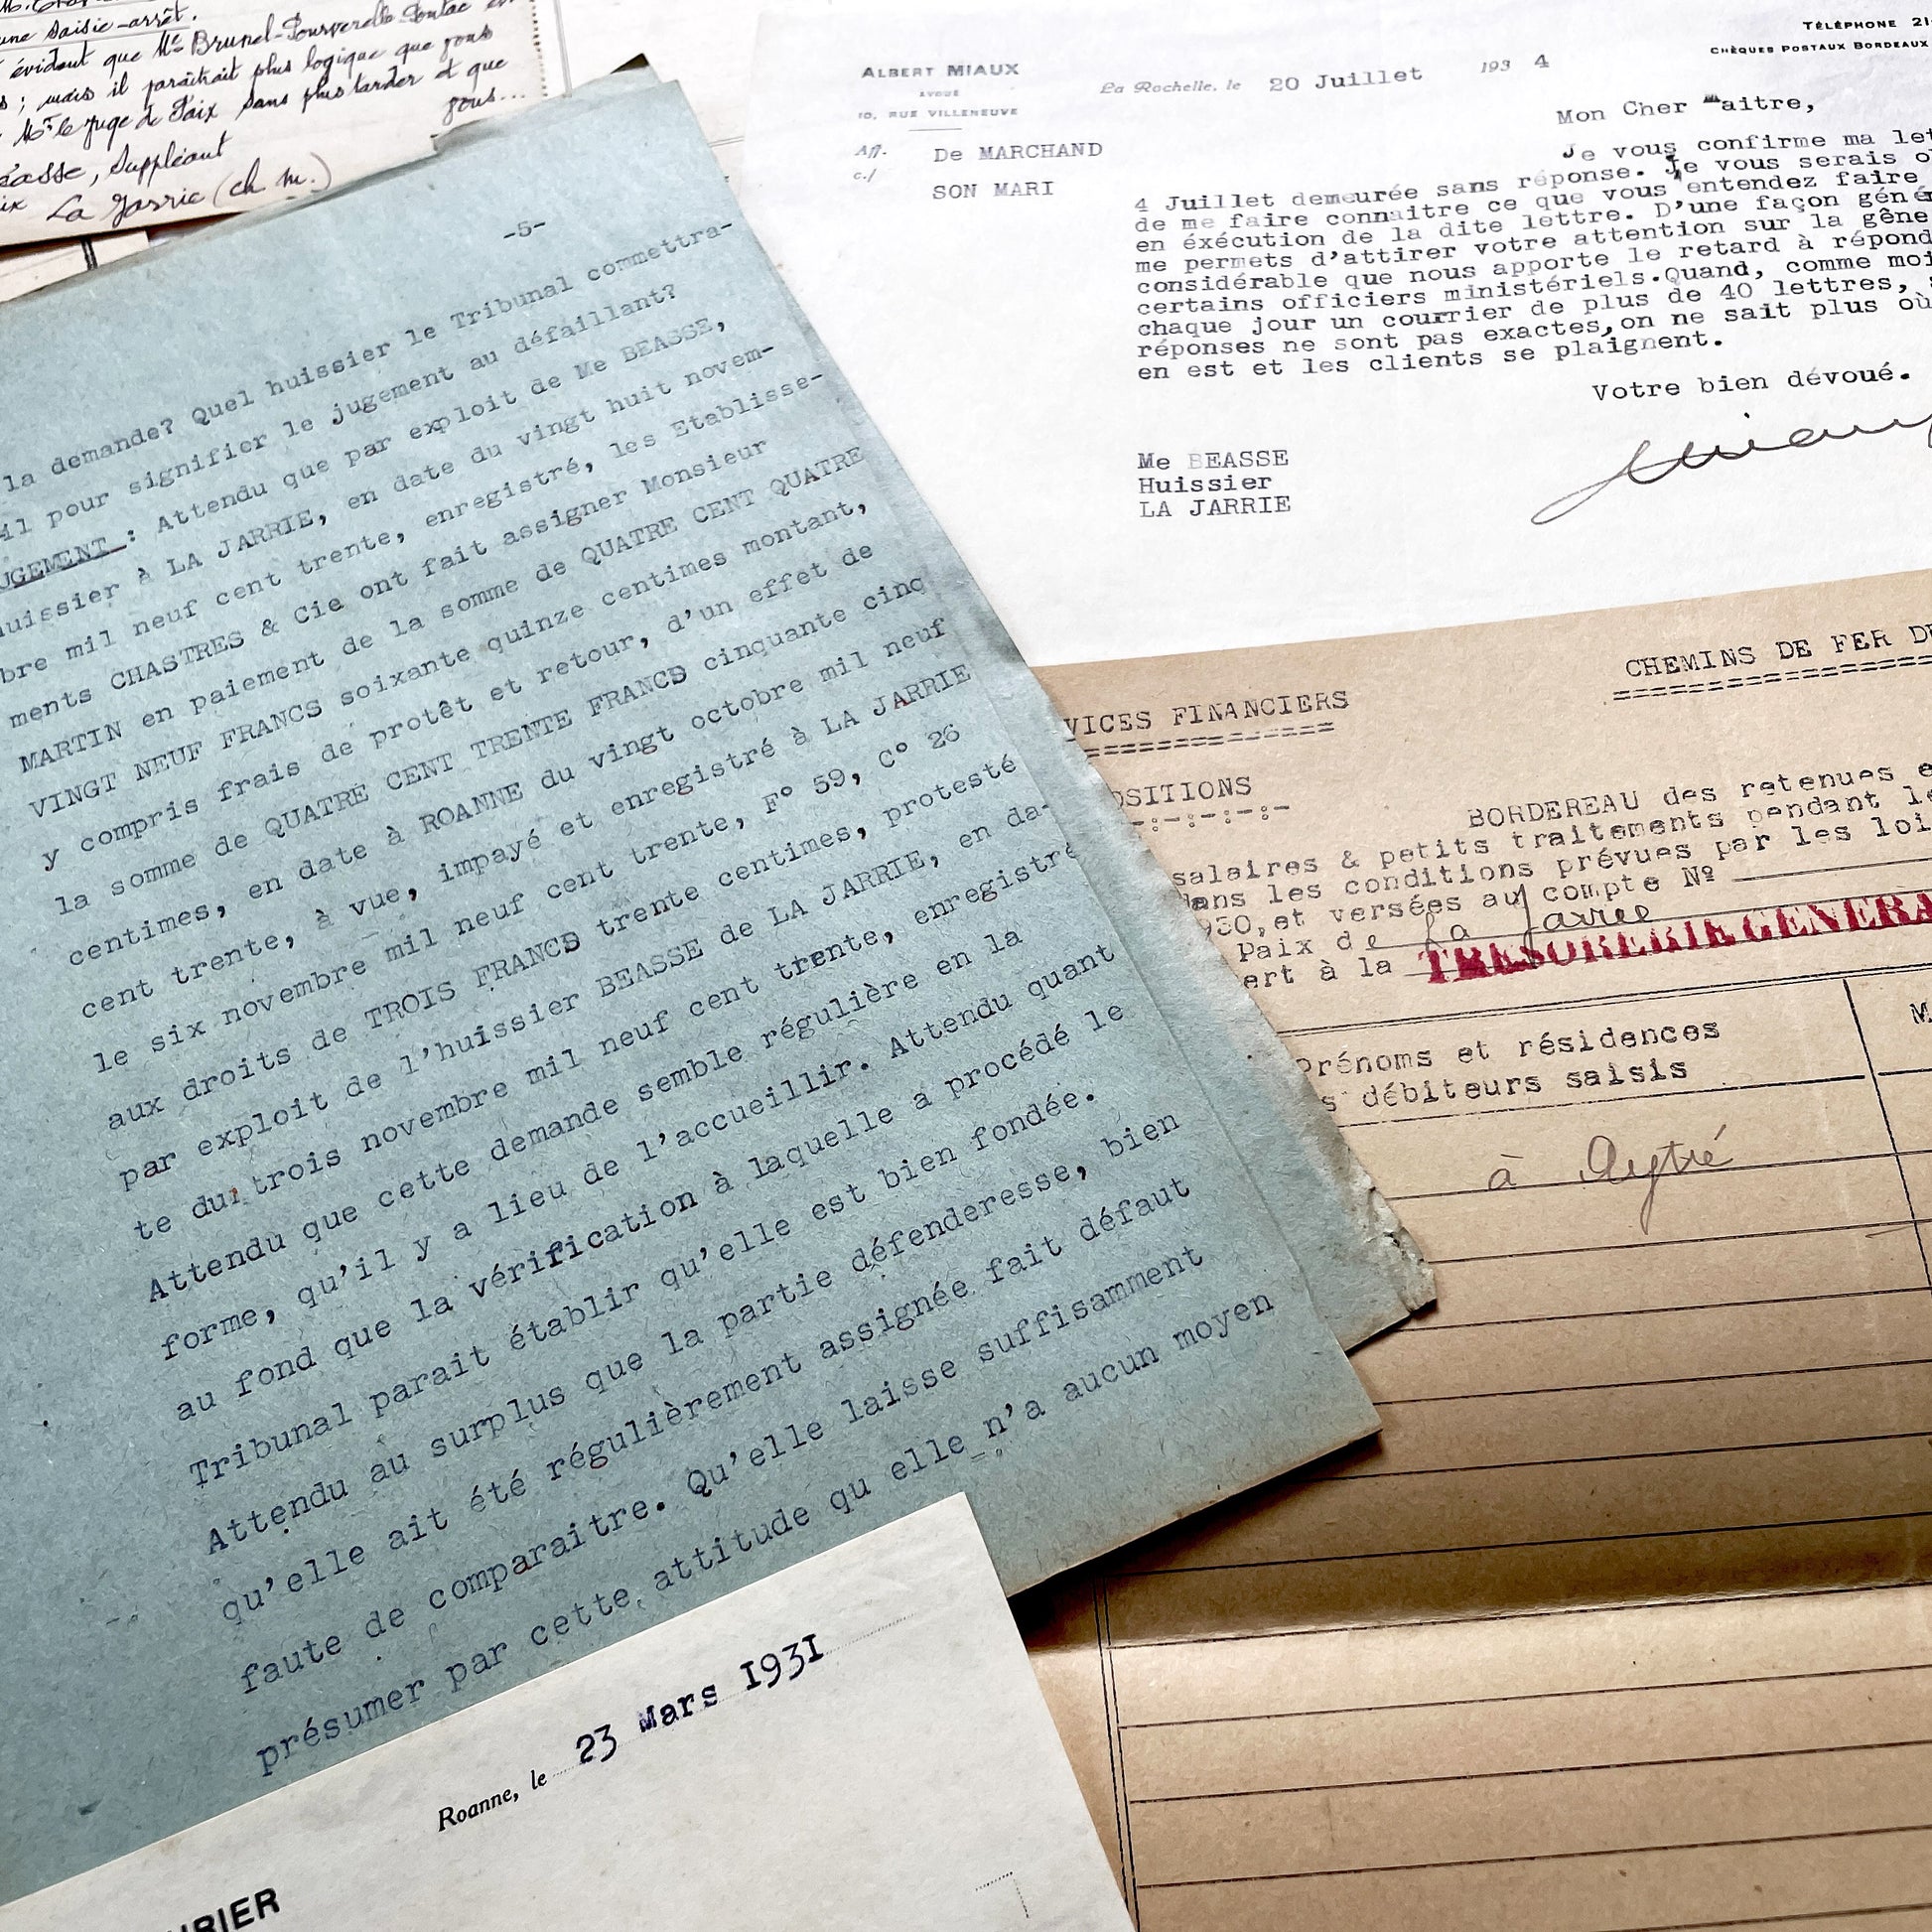 une saisie-arrêt.
évident que Me Brunel
; mais il paraîtrait plus logique que vous
Mr le Juge de Paix sans plus tarder et que
vous...
Suppléant
La Jarrie (ch. m.)
-5-
la demande? Quel huissier le Tribunal commettra-
il pour signifier le jugement au défaillant?
UGEMENT : Attendu que par exploit de Me BEASSE,
huissier à LA JARRIE, en date du vingt huit novem-
bre mil neuf cent trente, enregistré, les Etablisse-
ments CHASTRES & Cie ont fait assigner Monsieur
MARTIN en paiement de la somme de QUATRE CENT QUATRE
VINGT NEUF FRANCS soixante quinze centimes montant,
y compris frais de protêt et retour, d'un effet de
la somme de QUATRE CENT TRENTE FRANCS cinquante cinq
centimes, en date à ROANNE du vingt octobre mil neuf
cent trente, à vue, impayé et enregistré à LA JARRIE
le six novembre mil neuf cent trente, F° 59, C° 26
aux droits de TROIS FRANCS trente centimes, protesté
par exploit de l'huissier BEASSE de LA JARRIE, en da-
te du trois novembre mil neuf cent trente, enregistré
Attendu que cette demande semble régulière en la
forme, qu'il y a lieu de l'accueillir. Attendu quant
au fond que la vérification à laquelle a procédé le
Tribunal parait établir qu'elle est bien fondée.
Attendu au surplus que la partie défenderesse, bien
qu'elle ait été régulièrement assignée fait défaut
faute de comparaitre. Qu'elle laisse suffisamment
présumer par cette attitude qu elle n'a aucun moyen
Roanne, le 23 Mars 1931
RIER
TÉLÉPHONE 21
CHÈQUES POSTAUX BORDEAUX
ALBERT MIAUX
AVOUÉ
10, RUE VILLENEUVE
La Rochelle, le 20 Juillet 193 4
Aff. De MARCHAND
c./ SON MARI
Mon Cher Maitre,
Je vous confirme ma let
4 Juillet demeurée sans réponse. Je vous serais o
de me faire connaitre ce que vous entendez faire
en éxécution de la dite lettre. D'une façon géné
me permets d'attirer votre attention sur la gêne
considérable que nous apporte le retard à répond
certains officiers ministériels.Quand, comme moi
chaque jour un courrier de plus de 40 lettres,
réponses ne sont pas exactes,on ne sait plus où
en est et les clients se plaignent.
Votre bien dévoué.
Me BEASSE
Huissier
LA JARRIE
CHEMINS DE FER D
VICES FINANCIERS
OSITIONS
BORDEREAU des retenues
salaires & petits traitements pendant l
dans les conditions prévues par les loi
930,et versées au compte Nº
Paix de La Jarrie
ert à la TRÉSORERIE GÉNÉRA
Prénoms et résidences
s débiteurs saisis
M
à Aytré